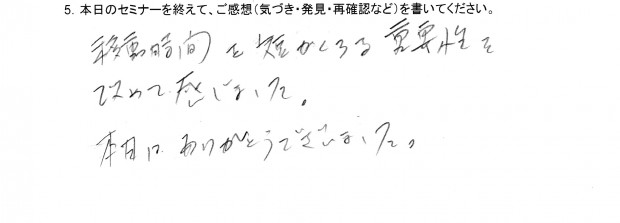 5. 本日のセミナーを終えて、ご感想(気づき・発見・再確認など)を書いてください。
移動時間を短かくする重要性を
改めて感じました。
本日は ありがとうございました。